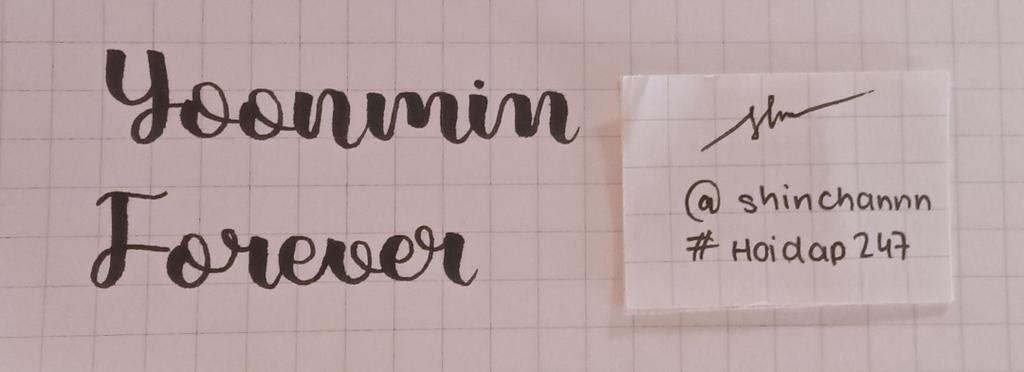 Yoonmin
Forever
@ shinchannn
# Hoidap 247